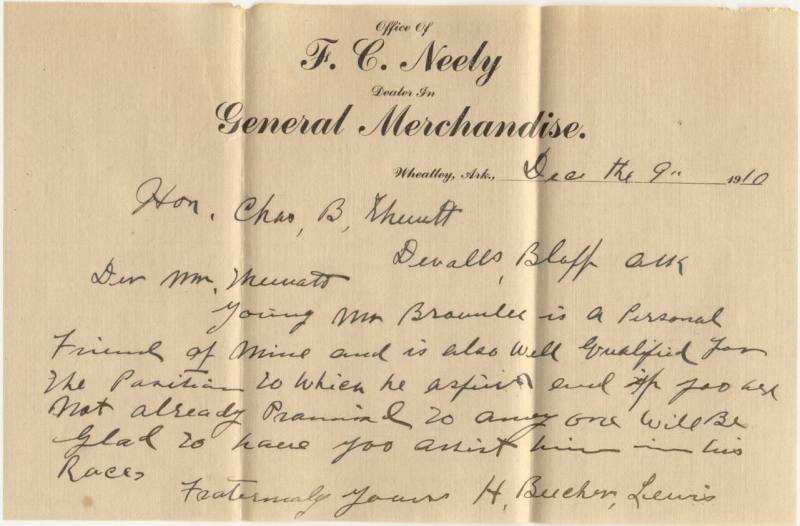 Office Of
F. C. Neely
Dealer In
General Merchandise.
Wheatley, Ark., Dec the 9" 1910
Hon. Chas, B, Thweatt
Devalls, Bluff ark
Der Mr, Thweatt
Young Mr Brownlee is a Personal
Friend of Mine and is also Well Qualified for
the Position to Which he aspires and if you are
Not already Promised to aney one Will Be
Glad to have you assist him in his
Race,
Fraternaly Yours H, Bucher, Lewis